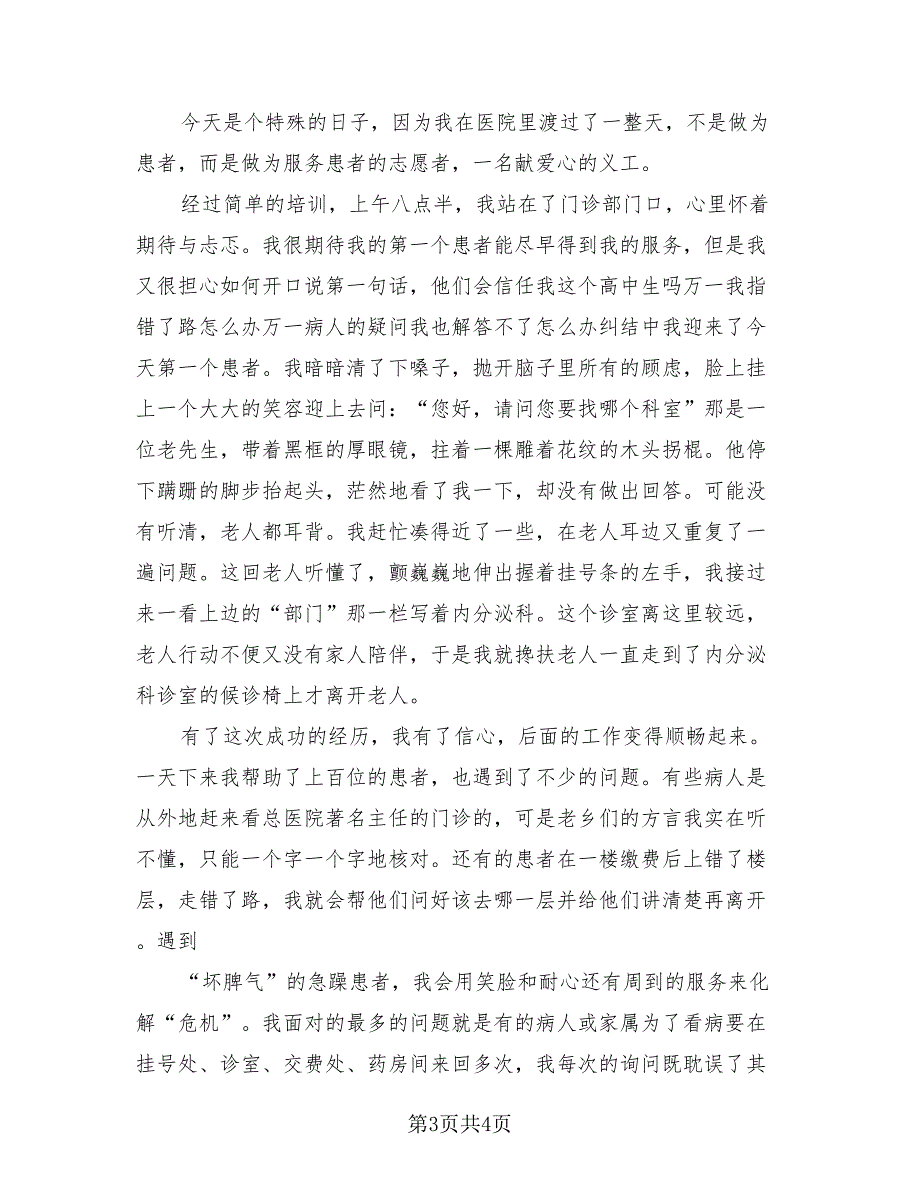 今天是个特殊的日子，因为我在医院里渡过了一整天，不是做为
患者，而是做为服务患者的志愿者，一名献爱心的义工。
经过简单的培训，上午八点半，我站在了门诊部门口，心里怀着
期待与忐忑。我很期待我的第一个患者能尽早得到我的服务，但是我
又很担心如何开口说第一句话，他们会信任我这个高中生吗万一我指
错了路怎么办万一病人的疑问我也解答不了怎么办纠结中我迎来了今
天第一个患者。我暗暗清了下嗓子，抛开脑子里所有的顾虑，脸上挂
上一个大大的笑容迎上去问：“您好，请问您要找哪个科室”那是一
位老先生，带着黑框的厚眼镜，拄着一棵雕着花纹的木头拐棍。他停
下蹒跚的脚步抬起头，茫然地看了我一下，却没有做出回答。可能没
有听清，老人都耳背。我赶忙凑得近了一些，在老人耳边又重复了一
遍问题。这回老人听懂了，颤巍巍地伸出握着挂号条的左手，我接过
来一看上边的“部门”那一栏写着内分泌科。这个诊室离这里较远，
老人行动不便又没有家人陪伴，于是我就搀扶老人一直走到了内分泌
科诊室的候诊椅上才离开老人。
有了这次成功的经历，我有了信心，后面的工作变得顺畅起来。
一天下来我帮助了上百位的患者，也遇到了不少的问题。有些病人是
从外地赶来看总医院著名主任的门诊的，可是老乡们的方言我实在听
不懂，只能一个字一个字地核对。还有的患者在一楼缴费后上错了楼
层，走错了路，我就会帮他们问好该去哪一层并给他们讲清楚再离开
。遇到
“坏脾气”的急躁患者，我会用笑脸和耐心还有周到的服务来化
解“危机”。我面对的最多的问题就是有的病人或家属为了看病要在
挂号处、诊室、交费处、药房间来回多次，我每次的询问既耽误了其
第3页共4页